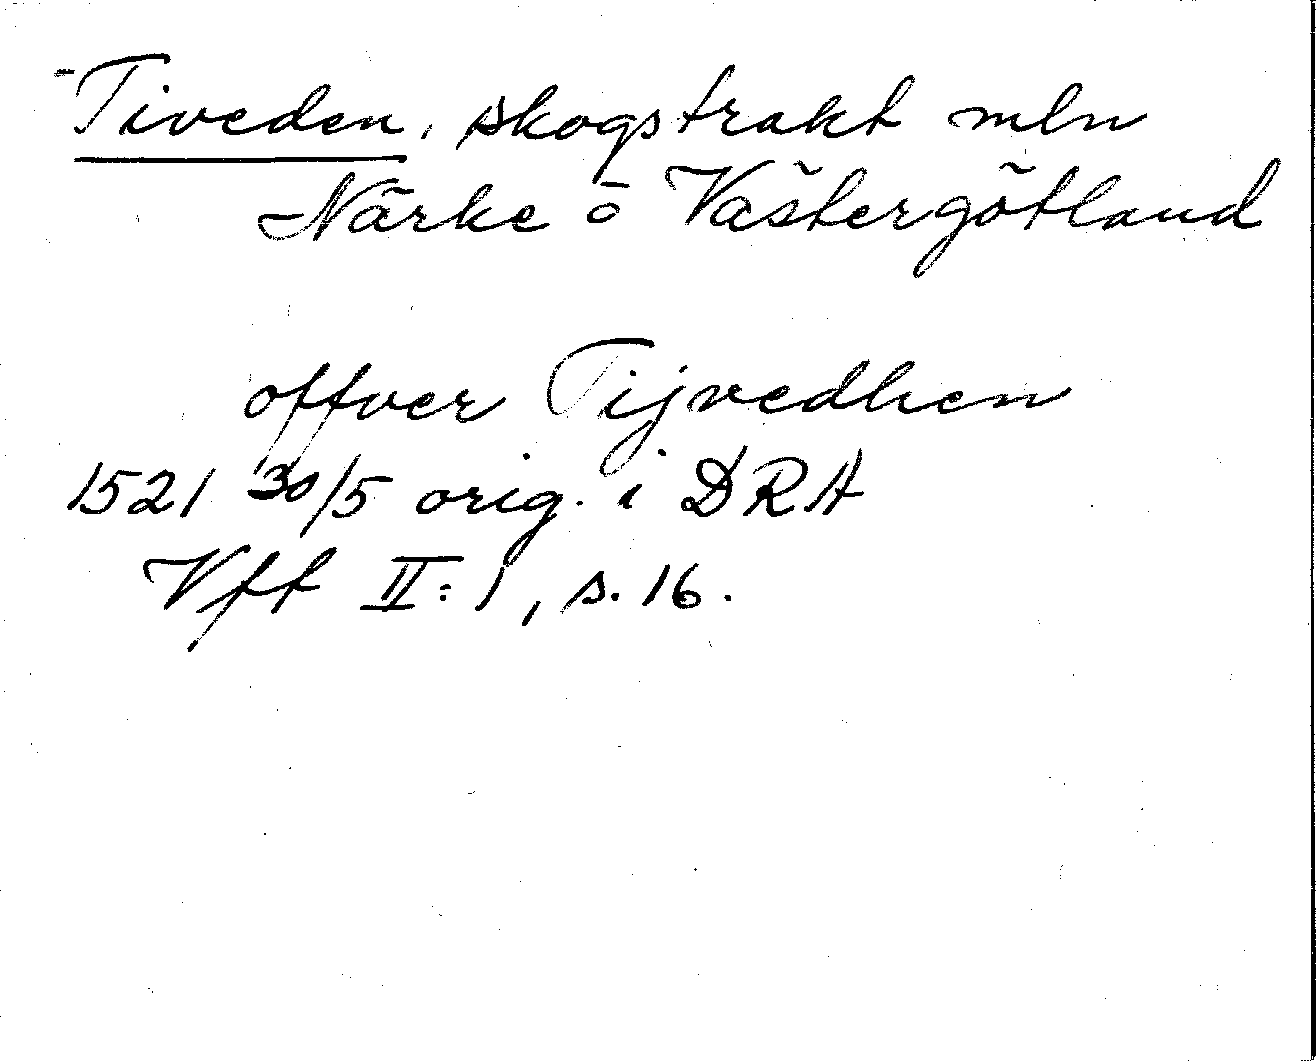 Tiveden, skogstrakt mln
Närke o Västergötland
offver Tijvedhen
1521 30/5 orig. i DRA
Vff II:1, s.16.